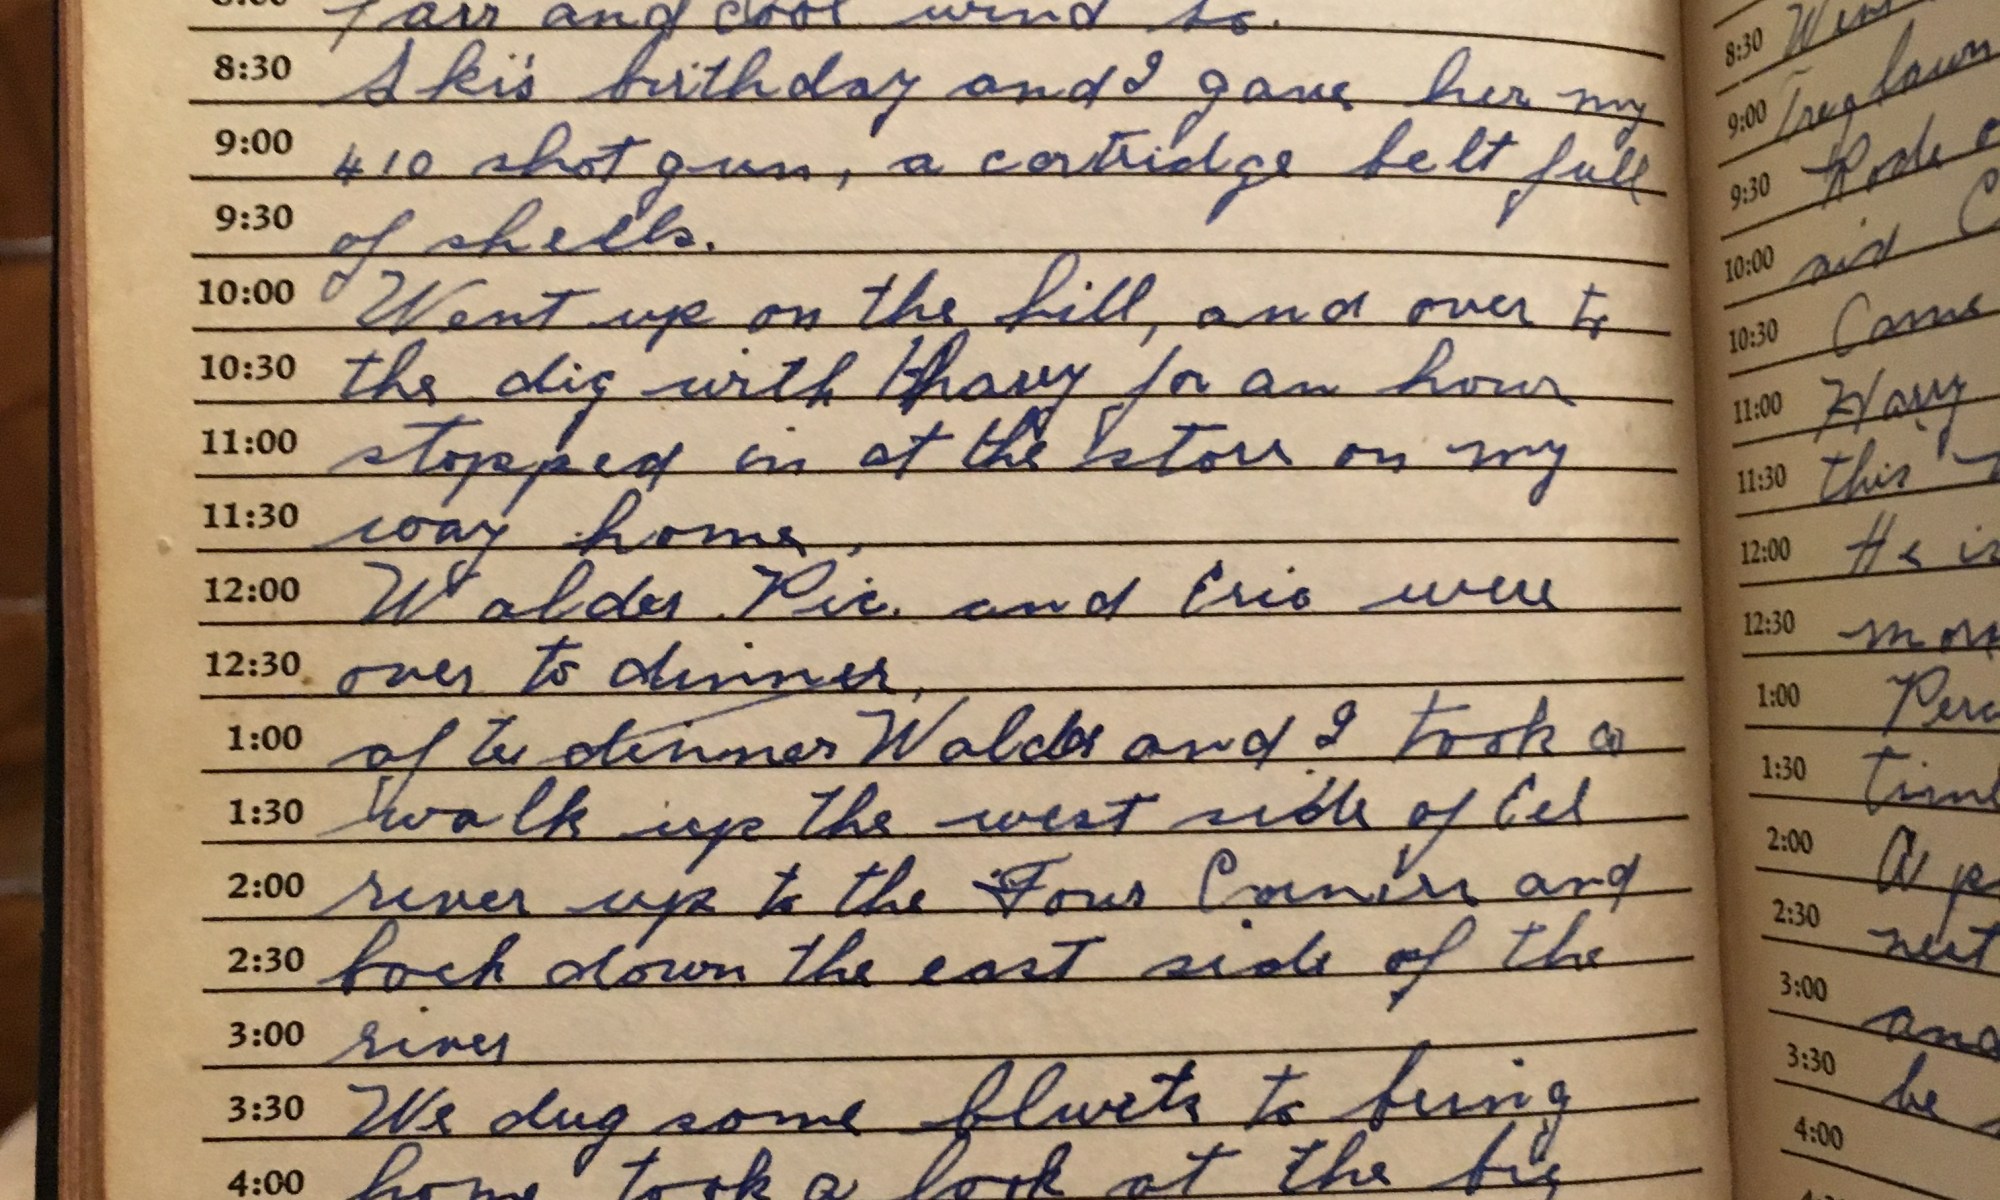 Fair and cool wind So.
8:30 Ski's birthday and I gave her my
9:00 410 shot gun, a cartridge belt full
9:30 of shells.
10:00 Went up on the hill, and over to
10:30 the dig with Harry for an hour
11:00 stopped in at the store on my
11:30 way home,
12:00 Waldo Pic. and Eric were
12:30 over to dinner,
1:00 after dinner Waldo and I took a
1:30 walk up the west side of Eel
2:00 river up to the Four Corners and
2:30 back down the east side of the
3:00 river
3:30 We dug some bluets to bring
4:00 home took a look at the big
8:30 Went
9:00 lawn
9:30 Rode
10:00 and
10:30 Came
11:00 Harry
11:30 this
12:00 He is
12:30
1:00
1:30
2:00
2:30 nest
3:00 and
3:30 be
4:00